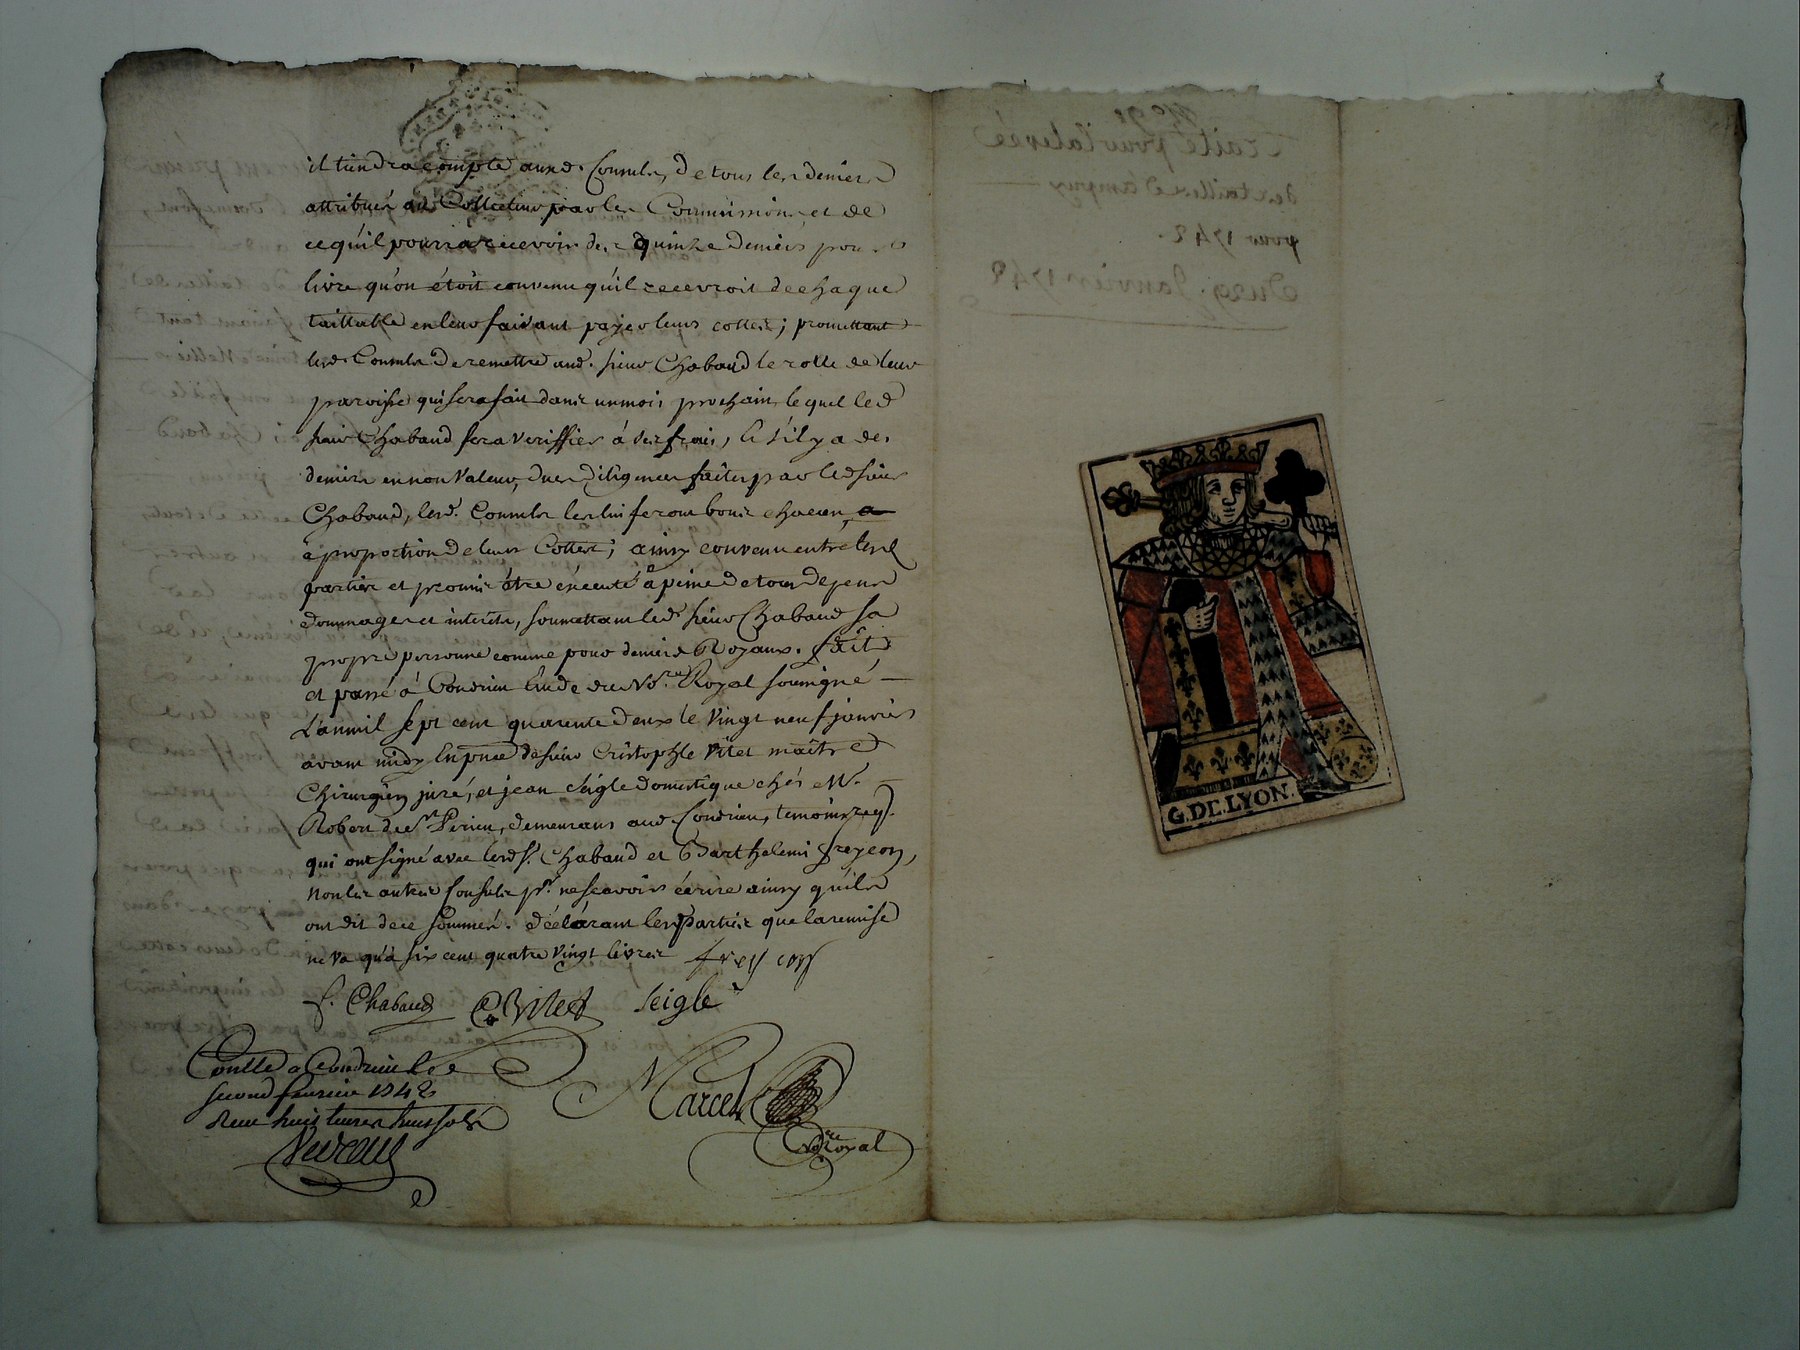 il tiendra compte aud. Consuls, de tous les deniers
attribués aud. Collecteurs par les Commissions et de
ce qu'il pourra recevoir des quinze deniers pour
livre qu'on étoit convenu qu'il recevroit de chaque
taillable en leur faisant payer leurs cottes; promettant
lesd. Consuls de remettre aud. sieur Chabaud le rolle de leur
paroisse qui sera fait dans un mois prochain, lequel led
sieur Chabaud fera veriffier à ses frais, & s'il y a des
deniers en non valeur, dues diligences faites par led sieur
Chabaud, lesd. Consuls les lui feront bons chacun
à proportion de leurs Cottes; ainsy convenu entre lesd
parties et promis être exécuté à peine de tous depens
dommages et interêts, soumettant led. sieur Chabaud sa
propre personne comme pour deniers Royaux. fait
et passé à Condrieu Etude du No.re Royal soussigné
L'an mil sept cent quarente deux le vingt neuf janvier
avant midy En pnce de sieur Cristophle Vitet maitre
Chirurgien juré, et jean Seigle domestique chés M.
Robert de St Perieu, demeurans aud Condrieu, temoins req.
qui ont signé avec led sr. Chabaud et Barthelemi freycon,
non les autres Consuls pr. ne scavoir écrire ainsy qu'ils
ont dit de ce sommés. déclarant lesd parties que la remise
ne va qu'à six cent quatre vingt livres freycon
f. Chabaud C Vitet Seigle
Conllé a Condrieu le
second fevrier 1742
Reçu huit livres huit sols
Marcel
No.re Royal
No 91
Traité pour la levée
des tailles d'ampuy
pour 1742.
Du 29. Janvier 1742
G.DE.LYON.